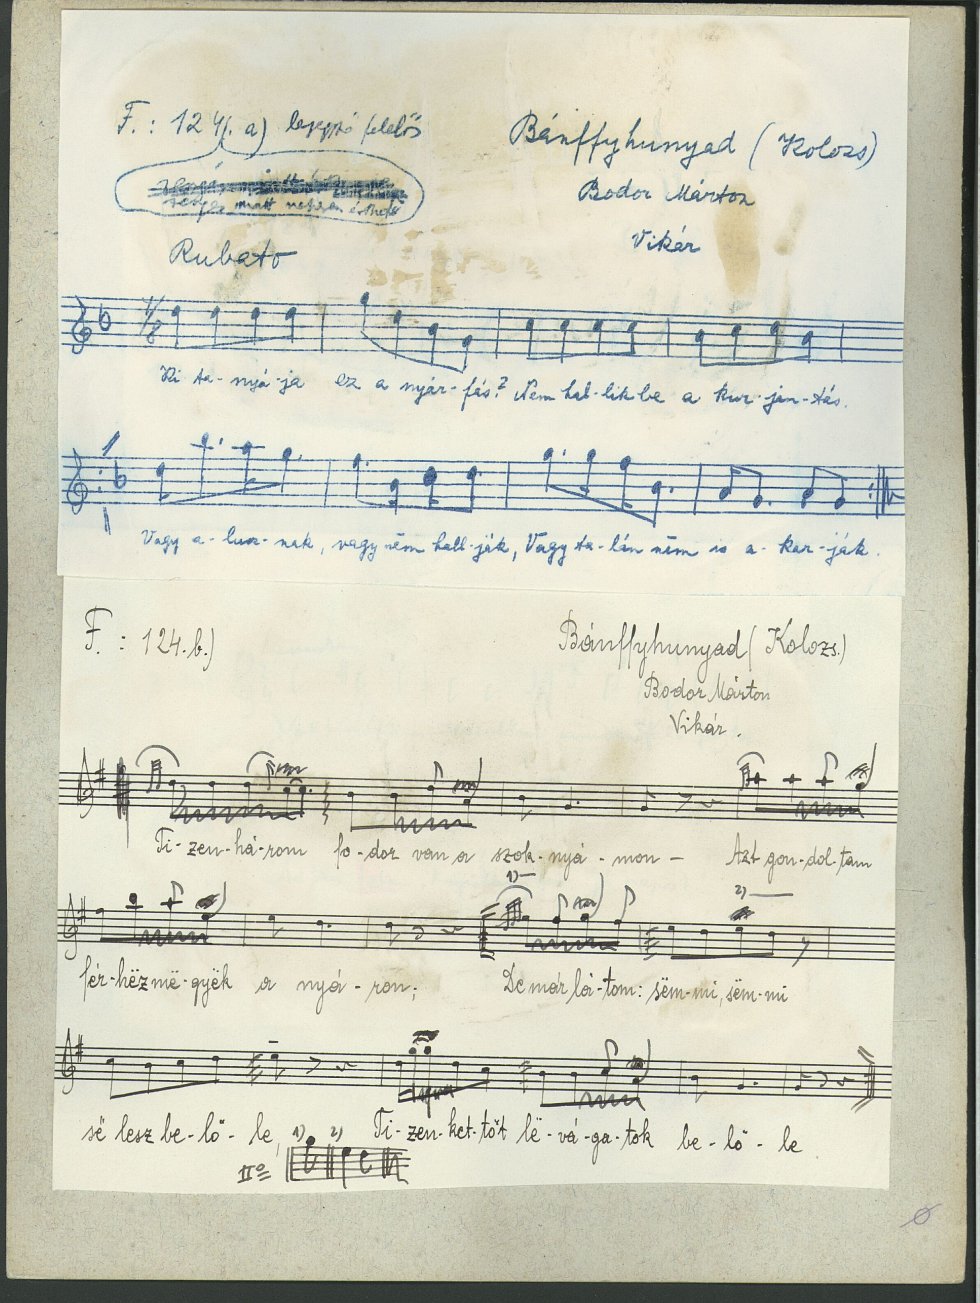 F. : 124. a)
Bánffyhunyad (Kolozs)
Bodor Márton
Vikár
nehezen érthető
Rubato
Ki ta-nyá-ja ez a nyár-fás? Nem hal-lik be a kur-ján-tás.
Vagy a-lusz-nak, vagy nëm hall-ják, Vagy ta-lán nëm is a-kar-ják.
F. : 124. b.)
Bánffyhunyad (Kolozs.)
Bodor Márton
Vikár.
Ti-zen-há-rom fo-dor van a szok-nyá-mon - Azt gon-dol-tam
1)- 2)
fér-hëz më-gyëk a nyá-ron; De már lá-tom: sëm-mi, sëm-mi
së lesz be-lő-le, Ti-zen-ket-tőt lë-vá-ga-tok be-lő-le
II° 1) 2)